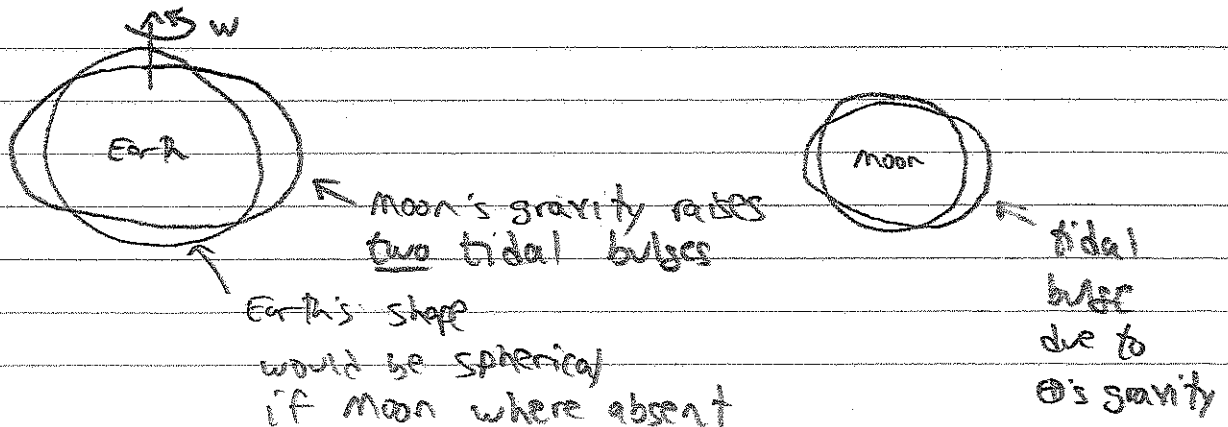 w
Earth
Moon
Moon's gravity raises
two tidal bulges
Earth's shape
would be spherical
if Moon where absent
tidal
bulge
due to
⊕'s gravity